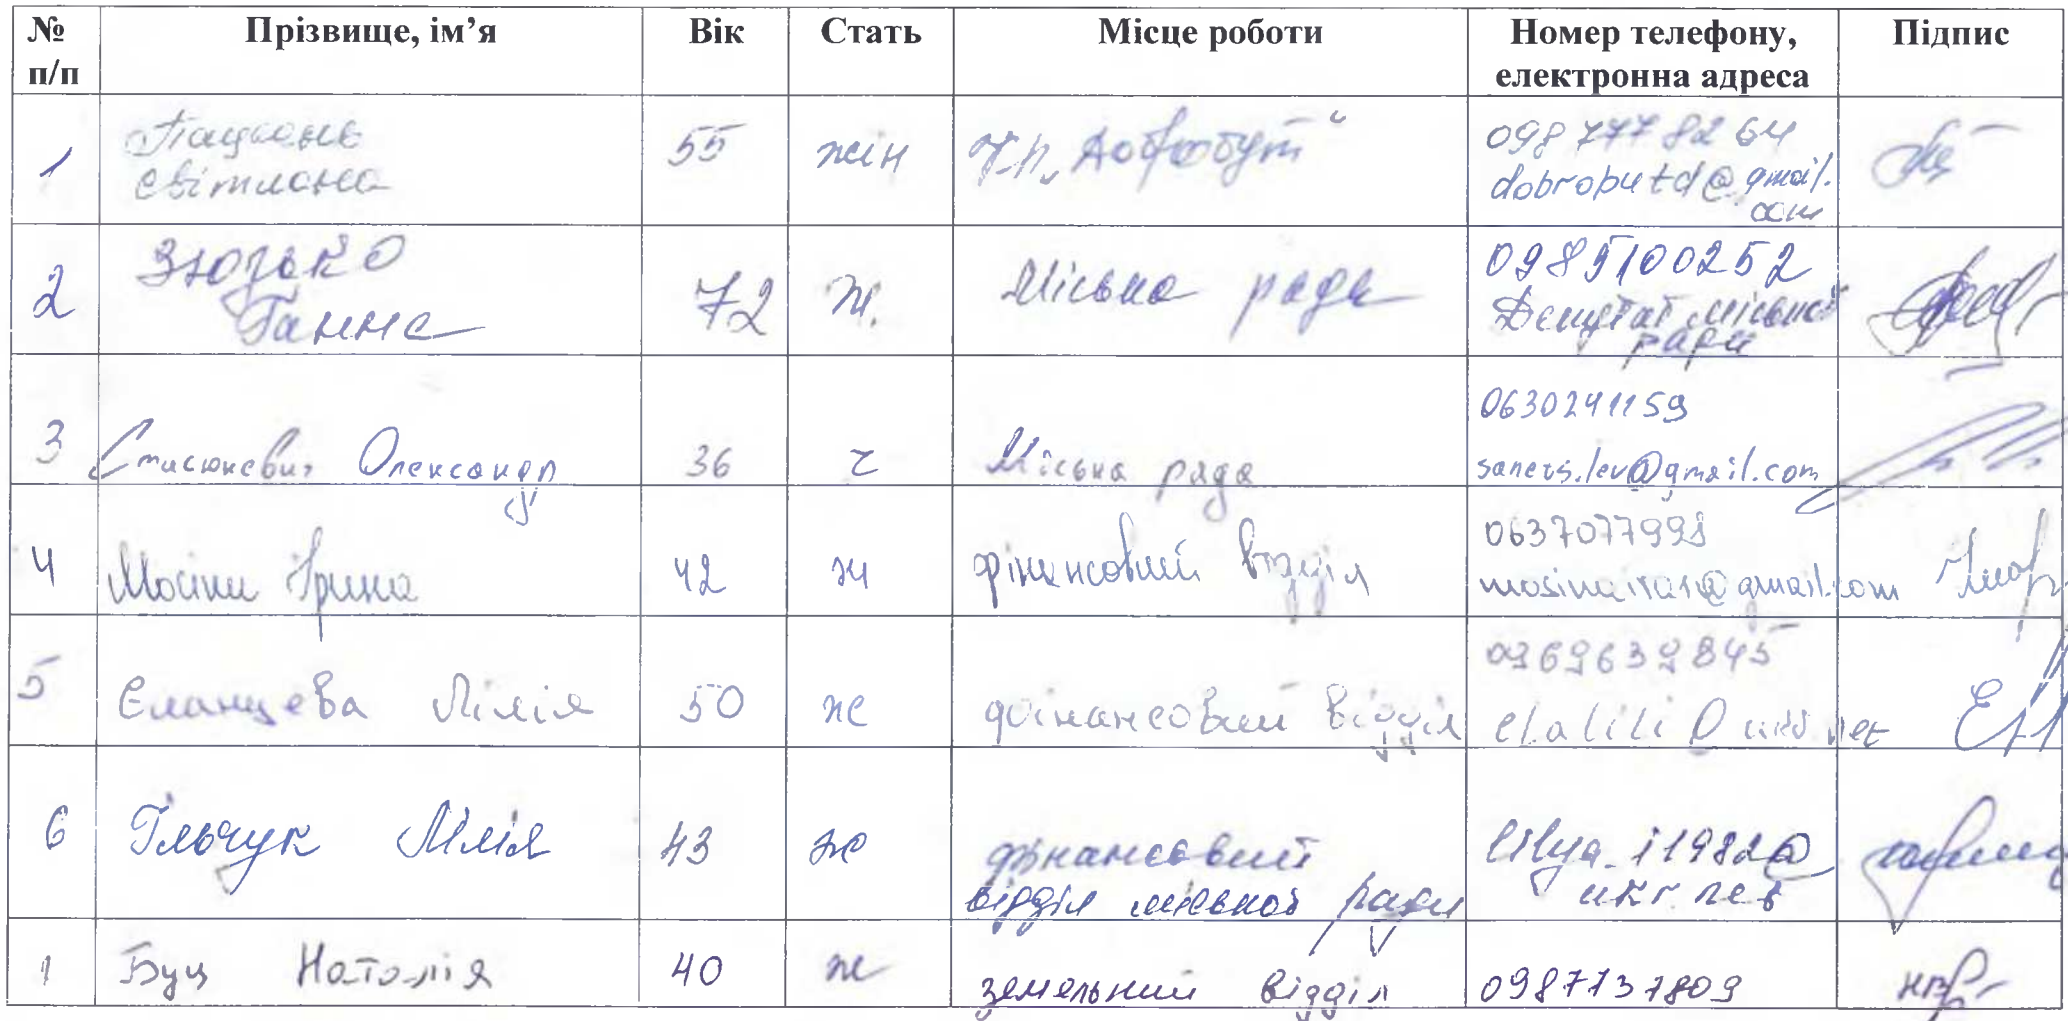 № п/п Прізвище, ім’я Вік Стать Місце роботи Номер телефону, електронна адреса Підпис
1 Світлана 55 жін ч.п. „Добробут“ 098 777 82 64
dobrobutd@gmail.com
2 Зюзько Ганна 72 ж. Міська рада 0985100252
Депутат міської ради
3 Стасюкевич Олександр 36 ч Міська рада 0630241159
4 Мосіна Ірина 42 ж фінансовий відділ 0637077998
5 Єланцева Лілія 50 ж фінансовий відділ 0969639845
6 Ільчук Лілія 43 ж фінансовий
відділ міської ради
Буц Наталія 40 ж земельний відділ 0987137809